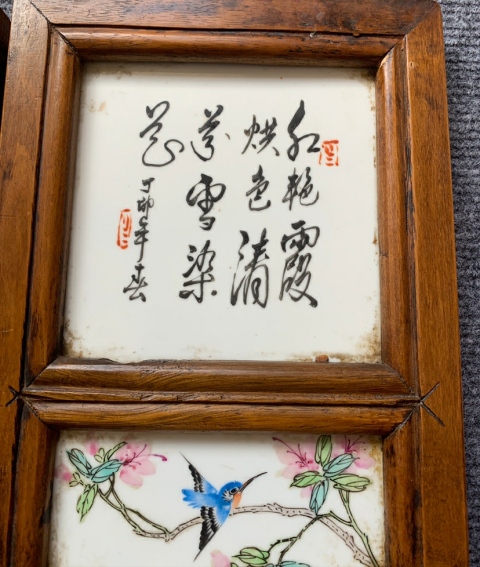 红艳霞
烘色清
芬雪染
花
丁卯年春